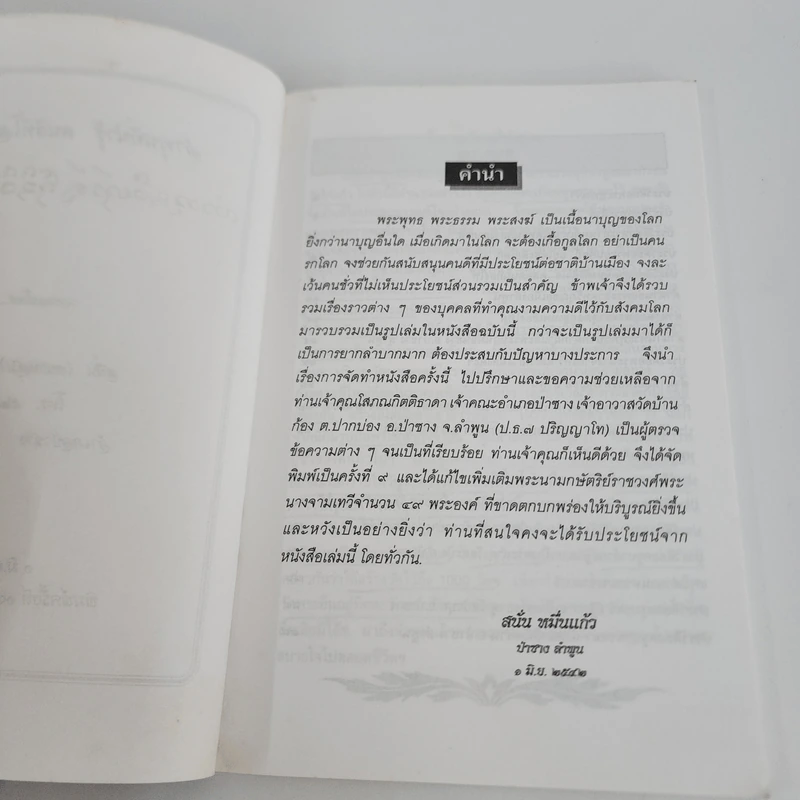 คำนำ
พระพุทธ พระธรรม พระสงฆ์ เป็นเนื้อนาบุญของโลก
ยิ่งกว่านาบุญอื่นใด เมื่อเกิดมาในโลก จะต้องเกื้อกูลโลก อย่าเป็นคน
รกโลก จงช่วยกันสนับสนุนคนดีที่มีประโยชน์ต่อชาติบ้านเมือง จงละ
เว้นคนชั่วที่ไม่เห็นประโยชน์ส่วนรวมเป็นสำคัญ ข้าพเจ้าจึงได้รวบ
รวมเรื่องราวต่าง ๆ ของบุคคลที่ทำคุณงามความดีไว้กับสังคมโลก
มารวบรวมเป็นรูปเล่มในหนังสือฉบับนี้ กว่าจะเป็นรูปเล่มมาได้ก็
เป็นการยากลำบากมาก ต้องประสบกับปัญหาบางประการ จึงนำ
เรื่องการจัดทำหนังสือครั้งนี้ ไปปรึกษาและขอความช่วยเหลือจาก
ท่านเจ้าคุณโสภณกิตติธาดา เจ้าคณะอำเภอป่าซาง เจ้าอาวาสวัดบ้าน
ก้อง ต.ปากบ่อง อ.ป่าซาง จ.ลำพูน (ป.ธ.๗ ปริญญาโท) เป็นผู้ตรวจ
ข้อความต่าง ๆ จนเป็นที่เรียบร้อย ท่านเจ้าคุณก็เห็นดีด้วย จึงได้จัด
พิมพ์เป็นครั้งที่ ๙ และได้แก้ไขเพิ่มเติมพระนามกษัตริย์ราชวงศ์พระ
นางจามเทวีจำนวน ๔๙ พระองค์ ที่ขาดตกบกพร่องให้บริบูรณ์ยิ่งขึ้น
และหวังเป็นอย่างยิ่งว่า ท่านที่สนใจคงจะได้รับประโยชน์จาก
หนังสือเล่มนี้ โดยทั่วกัน.
สนั่น หมื่นแก้ว
ป่าซาง ลำพูน
๑ มิ.ย. ๒๕๔๒